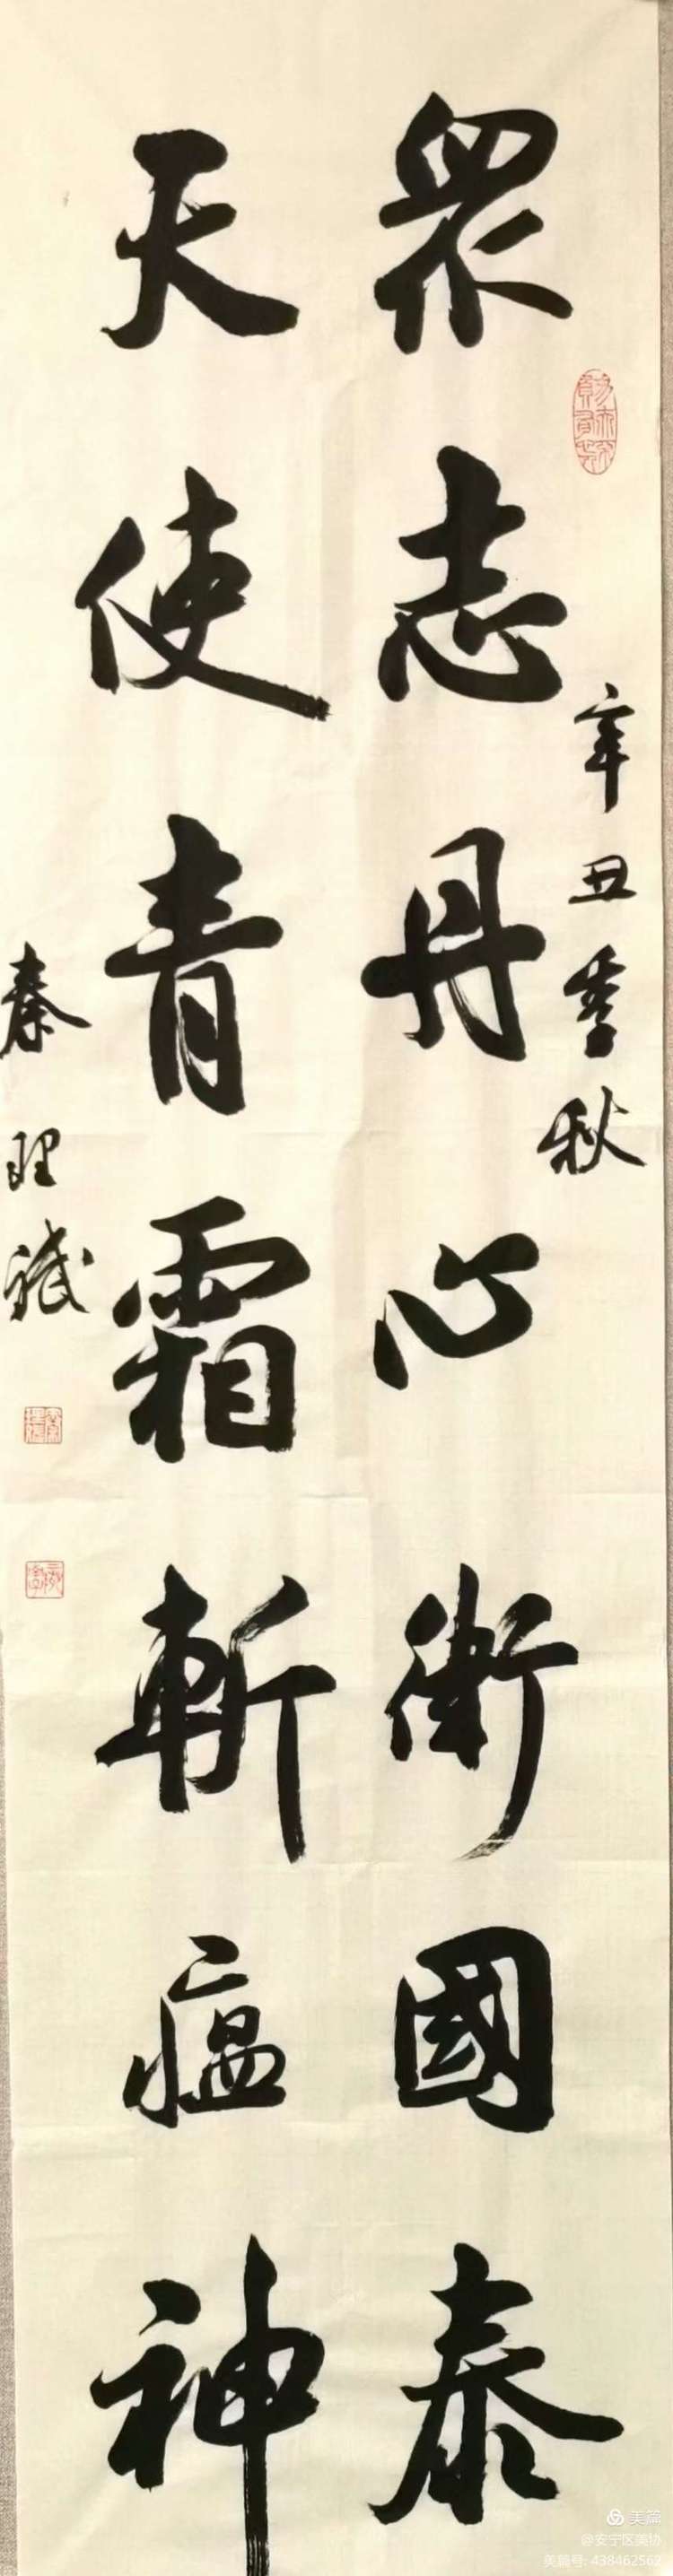 辛丑季秋
眾志丹心衛國泰
天使青霜斬瘟神
秦理斌
美篇
@安宁区美协
美篇号: 438462562